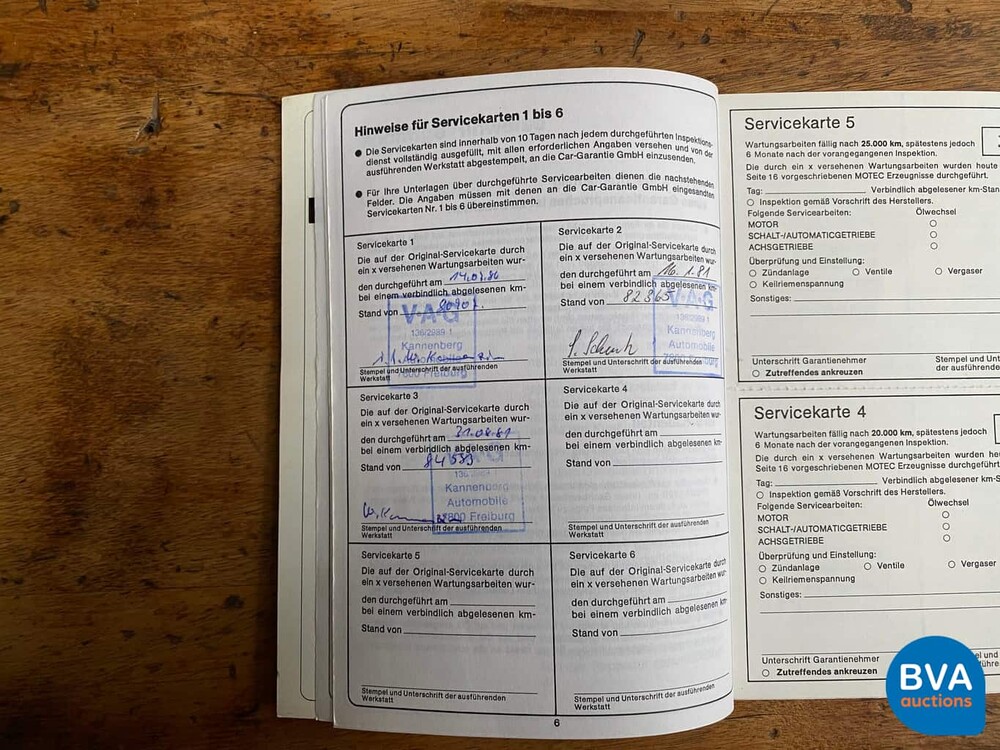 Hinweise für Servicekarten 1 bis 6
● Die Servicekarten sind innerhalb von 10 Tagen nach jedem durchgeführten Inspektions-
dienst vollständig ausgefüllt, mit allen erforderlichen Angaben versehen und von der
ausführenden Werkstatt abgestempelt, an die Car-Garantie GmbH einzusenden.
● Für Ihre Unterlagen über durchgeführte Servicearbeiten dienen die nachstehenden
Felder. Die Angaben müssen mit denen an die Car-Garantie GmbH eingesandten
Servicekarten Nr. 1 bis 6 übereinstimmen.
Servicekarte 1
Die auf der Original-Servicekarte durch
ein x versehenen Wartungsarbeiten wur-
den durchgeführt am
bei einem verbindlich abgelesenen km-
Stand von
V·A·G
136/2989 1
Kannenberg
Stempel und Unterschrift der ausführenden
Werkstatt
7800 Freiburg
Servicekarte 2
Die auf der Original-Servicekarte durch
ein x versehenen Wartungsarbeiten wur-
den durchgeführt am 16.1.81
bei einem verbindlich abgelesenen km-
Stand von 82365
V·A·G
136/2989 1
Kannenberg
Automobile
7800 Freiburg
Stempel und Unterschrift der ausführenden
Werkstatt
Servicekarte 3
Die auf der Original-Servicekarte durch
ein x versehenen Wartungsarbeiten wur-
den durchgeführt am 31.08.81
bei einem verbindlich abgelesenen km-
Stand von 84539
Kannenberg
Automobile
7800 Freiburg
Stempel und Unterschrift der ausführenden
Werkstatt
Servicekarte 4
Die auf der Original-Servicekarte durch
ein x versehenen Wartungsarbeiten wur-
den durchgeführt am
bei einem verbindlich abgelesenen km-
Stand von
Stempel und Unterschrift der ausführenden
Werkstatt
Servicekarte 5
Die auf der Original-Servicekarte durch
ein x versehenen Wartungsarbeiten wur-
den durchgeführt am
bei einem verbindlich abgelesenen km-
Stand von
Stempel und Unterschrift der ausführenden
Werkstatt
Servicekarte 6
Die auf der Original-Servicekarte durch
ein x versehenen Wartungsarbeiten wur-
den durchgeführt am
bei einem verbindlich abgelesenen km-
Stand von
Stempel und Unterschrift der ausführenden
Werkstatt
6
Servicekarte 5
Wartungsarbeiten fällig nach 25.000 km, spätestens jedoch
6 Monate nach der vorangegangenen Inspektion.
Die durch ein x versehenen Wartungsarbeiten wurden heute
Seite 16 vorgeschriebenen MOTEC Erzeugnisse durchgeführt.
Tag: Verbindlich abgelesener km-Stan
Inspektion gemäß Vorschrift des Herstellers.
Folgende Servicearbeiten: Ölwechsel
MOTOR
SCHALT-/AUTOMATICGETRIEBE
ACHSGETRIEBE
Überprüfung und Einstellung:
Zündanlage Ventile Vergaser
Keilriemenspannung
Sonstiges:
Unterschrift Garantienehmer Stempel und Unte
Zutreffendes ankreuzen der ausführende
Servicekarte 4
Wartungsarbeiten fällig nach 20.000 km, spätestens jedoch
6 Monate nach der vorangegangenen Inspektion.
Die durch ein x versehenen Wartungsarbeiten wurden heu
Seite 16 vorgeschriebenen MOTEC Erzeugnisse durchgeführt
Tag: Verbindlich abgelesener km-S
Inspektion gemäß Vorschrift des Herstellers.
Folgende Servicearbeiten: Ölwechsel
MOTOR
SCHALT-/AUTOMATICGETRIEBE
ACHSGETRIEBE
Überprüfung und Einstellung:
Zündanlage Ventile Vergaser
Keilriemenspannung
Sonstiges:
Unterschrift Garantienehmer
Zutreffendes ankreuzen
BVA
auctions